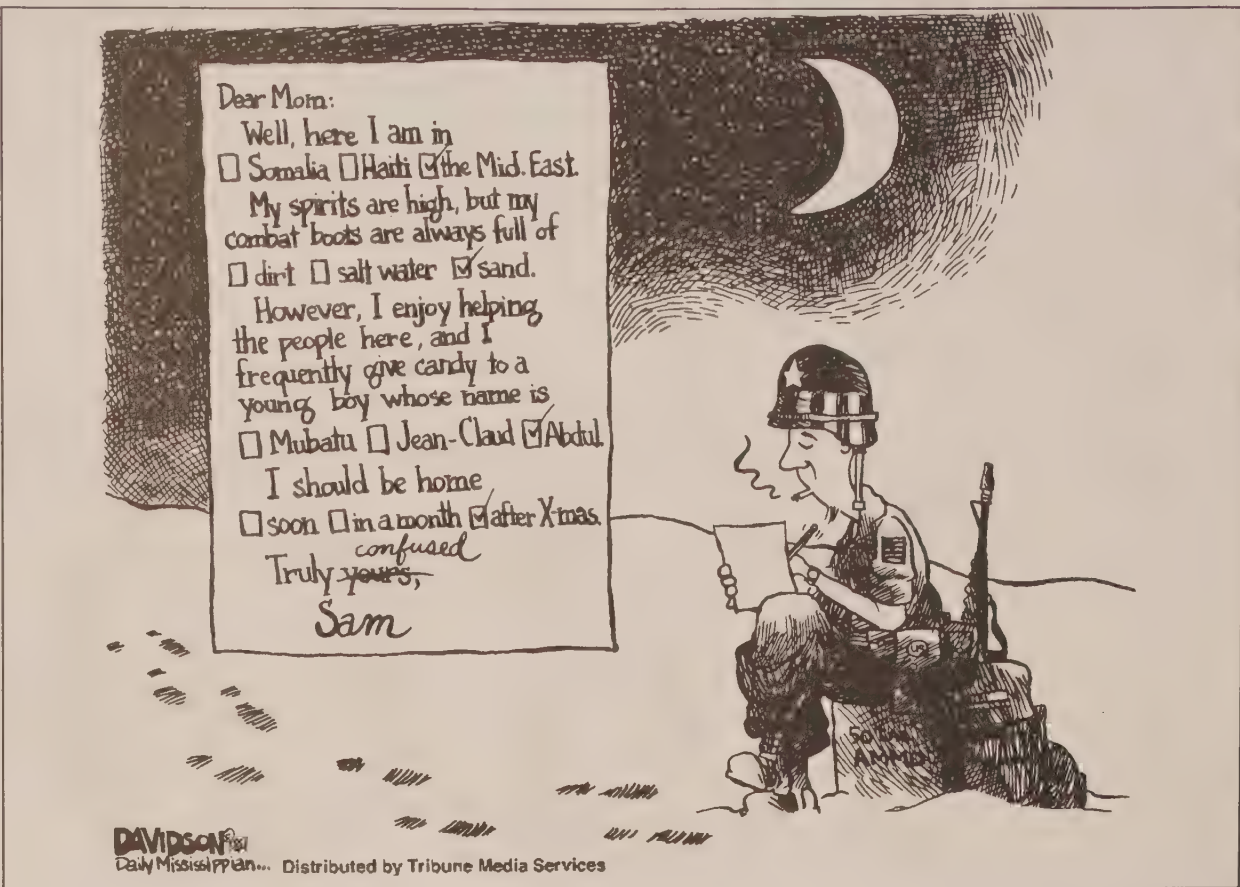 Dear Mom:
Well, here I am in
☐ Somalia ☐ Haiti ☑ the Mid. East.
My spirits are high, but my
combat boots are always full of
☐ dirt ☐ salt water ☑ sand.
However, I enjoy helping
the people here, and I
frequently give candy to a
young boy whose name is
☐ Mubatu ☐ Jean-Claud ☑ Abdul.
I should be home
☐ soon ☐ in a month ☑ after X-mas.
confused
Truly yours,
Sam
AMMO
DAVIDSON
Daily Mississippian... Distributed by Tribune Media Services